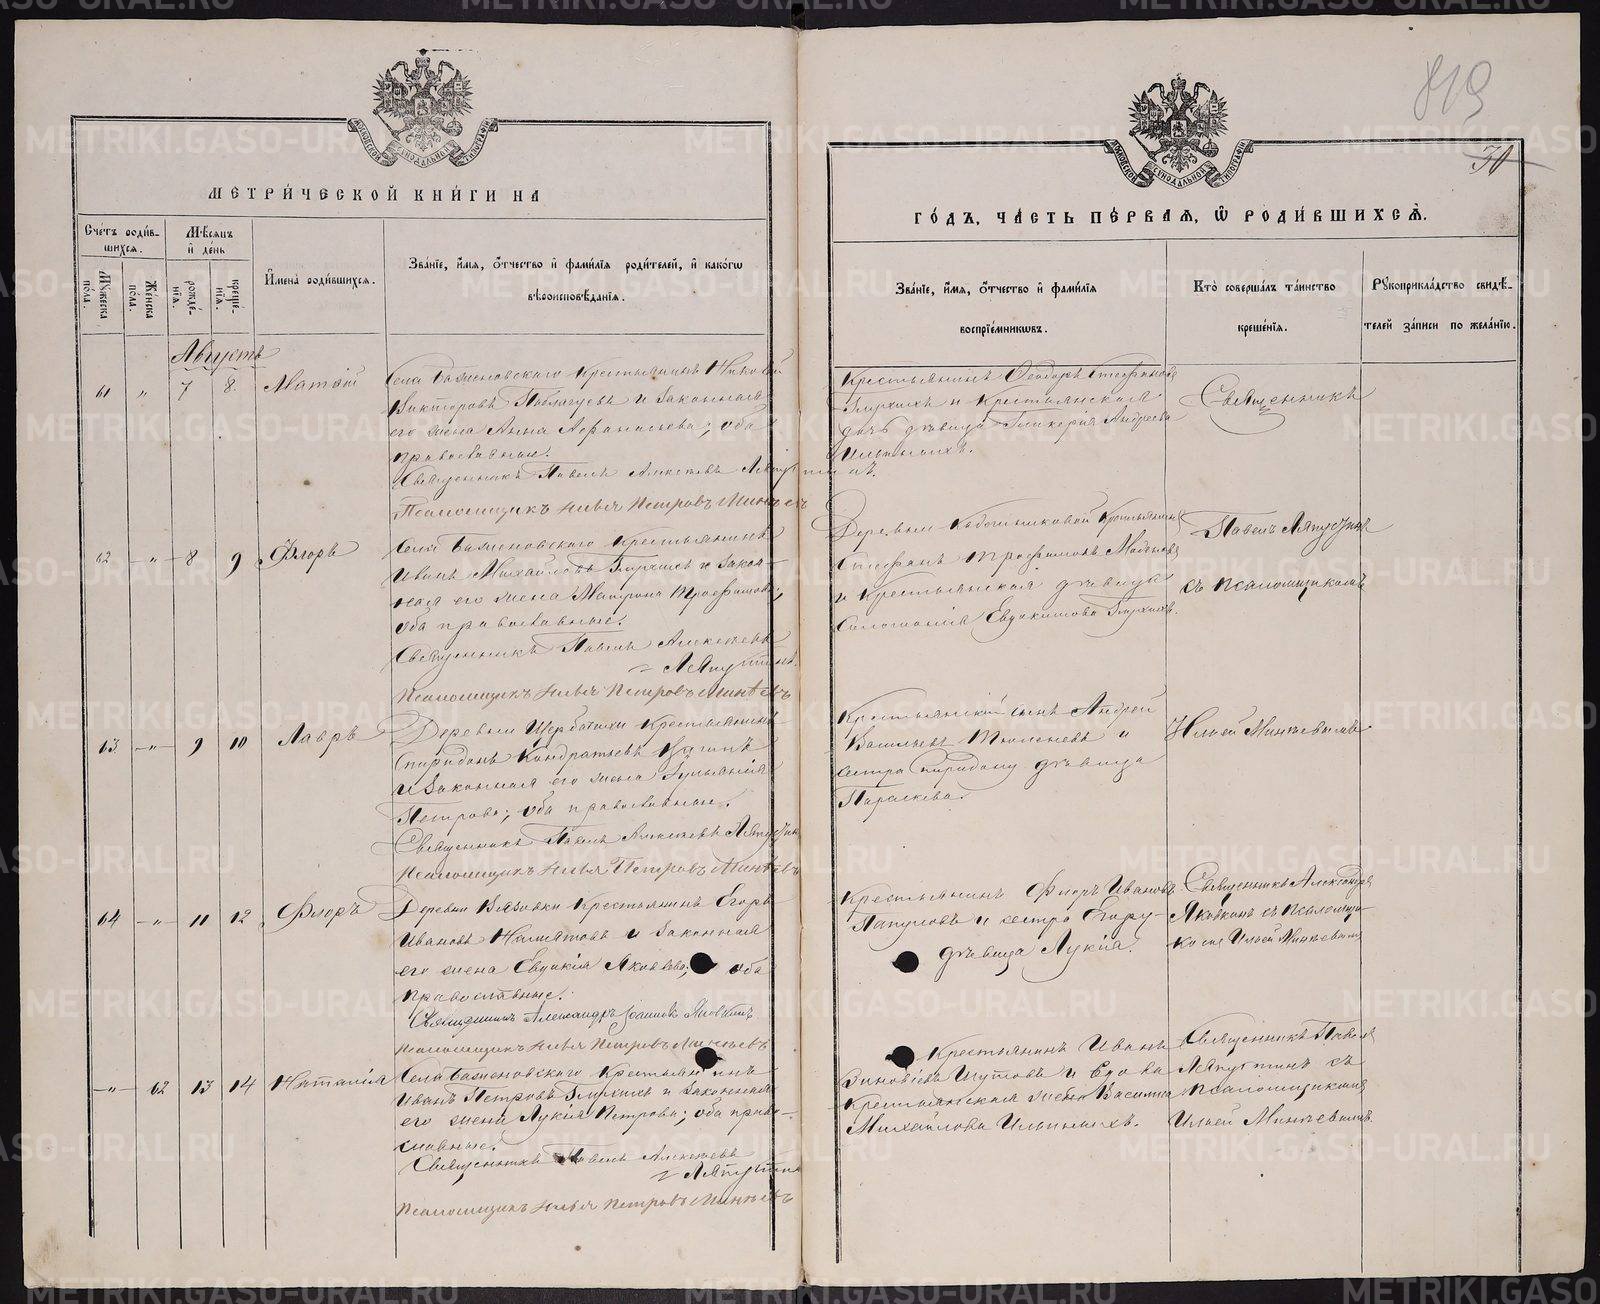 819
30
МЕТРИ́ЧЕСКОЙ КНИ́ГИ НА
ГО́ДЪ, ЧА́СТЬ ПЕ́РВАЯ, Ѡ РОДИ́ВШИХСѦ.
Сче́тъ роди́в-
шихся.
Мꙋ́жеска по́ла.
Же́нска по́ла.
Мѣ́сяцъ
и҆ де́нь
рожде́-
нїя.
креще́-
нїя.
И҆мена̀ роди́вшихся.
Зва́нїе, и҆́мя, ѻ҆́тчество и҆ фами́лїя роди́телей, и҆ како́гѡ
вѣроисповѣ́данїя.
Зва́нїе, и҆́мя, ѻ҆́тчество и҆ фами́лїя
воспрїе́мникѡвъ.
Кто̀ соверша́лъ та́инство
креще́нїя.
Рꙋкоприкла́дство свидѣ́-
телей за́писи по жела́нїю.
Августъ
61 " 7 8. Матѳій
Села Баженовскаго крестьянинъ
Викторовъ и законная
его жена Анна Афанасьева; оба
православные.
Священникъ Павелъ Алексѣевъ Ляпустинъ.
Псаломщикъ Илья Петровъ Минѣевъ
Крестьянинъ Ѳеодоръ Стефановъ
Глухихъ и крестьянская
дочь дѣвица Гликерія Андреева
Ильиныхъ.
Священникъ
62 " 8 9 Флоръ
Села Баженовскаго крестьянинъ
Иванъ Михайловъ Глухихъ и закон-
ная его жена Матрона Трофимова;
оба православные.
Священникъ Павелъ Алексѣевъ
Ляпустинъ.
Псаломщикъ Илья Петровъ Минѣевъ
Деревни крестьянинъ
Стефанъ Трофимовъ
и крестьянская дѣвица
Соломонія Евдокимова Глухихъ.
Павелъ Ляпустинъ
съ псаломщикомъ
63 " 9 10 Лавръ
Деревни Щербакова крестьянинъ
Спиридонъ Кондратьевъ Вагинъ
и законная его жена Іуліанія
Петрова; оба православные.
Священникъ Павелъ Алексѣевъ Ляпустинъ
Псаломщикъ Илья Петровъ Минѣевъ
Крестьянскій сынъ Андрей
Васильевъ и
сестра Спиридону дѣвица
Параскева.
Ильей Минѣевымъ
64 " 11 12 Флоръ
Деревни Вязовки крестьянинъ Егоръ
Ивановъ и законная
его жена Евдокія Яковлева; оба
православные.
Священникъ Александръ Іоанновъ Яковкинъ.
Псаломщикъ Илья Петровъ Минѣевъ
Крестьянинъ Флоръ Ивановъ
и сестра Егору
дѣвица Лукія.
Священникъ Александръ
Яковкинъ съ псаломщи-
комъ Ильей Минѣевымъ
" 62 13 14 Наталія
Села Баженовскаго крестьянинъ
Иванъ Петровъ Глухихъ и законная
его жена Лукія Петрова; оба право-
славные.
Священникъ Павелъ Алексѣевъ
Ляпустинъ
Псаломщикъ Илья Петровъ Минѣевъ
Крестьянинъ Иванъ
Зиновьевъ Шутовъ и вдова
крестьянская жена Васисса
Михайлова Ильиныхъ.
Священникъ Павелъ
Ляпустинъ съ
псаломщикомъ
Ильей Минѣевымъ.
METRIKI.GASO-URAL.RU